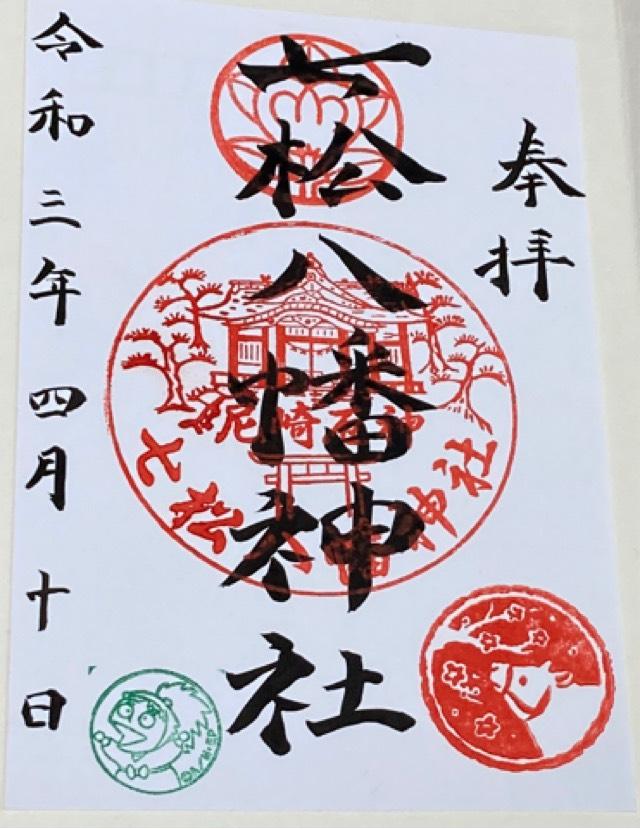 奉拝
七松八幡神社
尼崎百神
七松八幡神社
令和三年四月十日